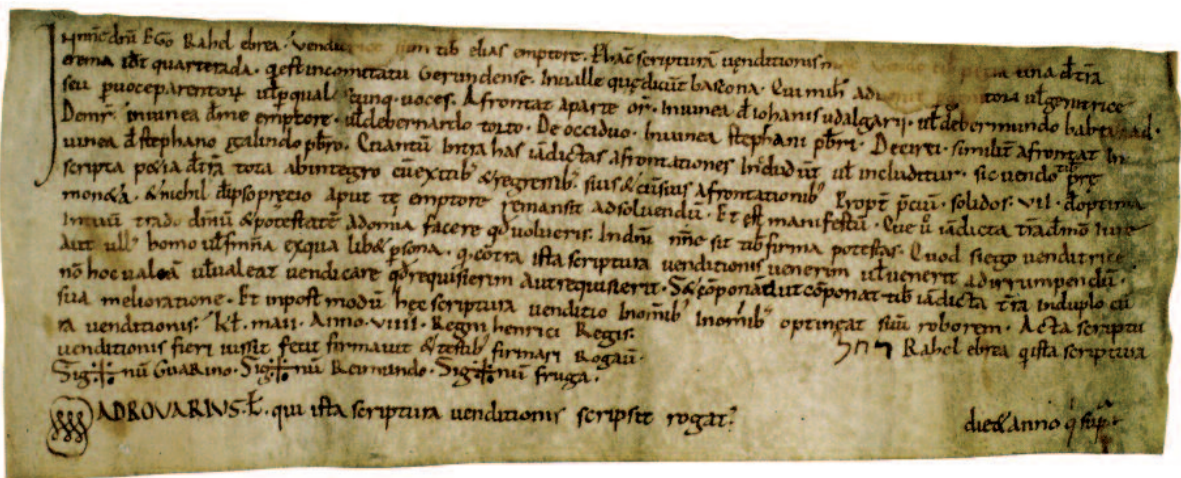 In nomine dñi Ego Rahel ebrea venditrice tibi elias emptore. P hac scriptura venditionis una de trã
erema id est quarterada. q est in comitatu Gerundense. In ville que dicunt bascona. Qui mihi advenit genitori vel genitrice
seu p voce parentorũ vel p qual cunq voces. Afrontat a parte or̃. In vinea de iohanis udalgarii. vel de bermundo
De mr̃. in vinea de me emptore. vel de bernardo torto. De occiduo. In vinea stephani pbri. De circi. similiter afrontat in
vinea de stephano galindo pbro. Quantũ infra has iãdictas afrontationes includunt vel includitur. sic vendo tibi pre
scripta pecia de trã tota ab integro cũ exitib & regressib suis & cũ suis afrontationib. Propt pcium. solidos. vii. de optima
moneta. & nichil de ipso precio aput te emptore remansit ad solvendũ. Et est manifestũ. Que vero iãdicta trã de meo iure
In tuũ trado dmũ & potestatẽ ad omnia facere qd volueris. In dmũ nñe sit tibi firma potestas. Quod si ego venditrice
Aut ull homo vel femina ex qua lib& psona. q cõtra ista scriptura venditionis venerim vel venerit ad irrumpendũ.
nõ hoc valeã vel valeat vendicare qd requisierim aut requisierit. S& cõponã aut cõponat tibi iãdicta trã in duplo cũ
sua melioratione. Et in post modũ hec scriptura venditio in omib In omib optineat suũ roborem. Acta scriptu
ra venditionis. kl. maii. Anno. viiii. Regni henrici Regis.
רחל Rahel ebrea q ista scriptura
venditionis fieri iussit fecit firmavit & testib firmari Rogavi.
Sig num Guarino. Sig num Reimundo. Sig num fruga.
ADROVARIUS. qui ista scriptura venditionis scripsit rogat
die & anno q sup.